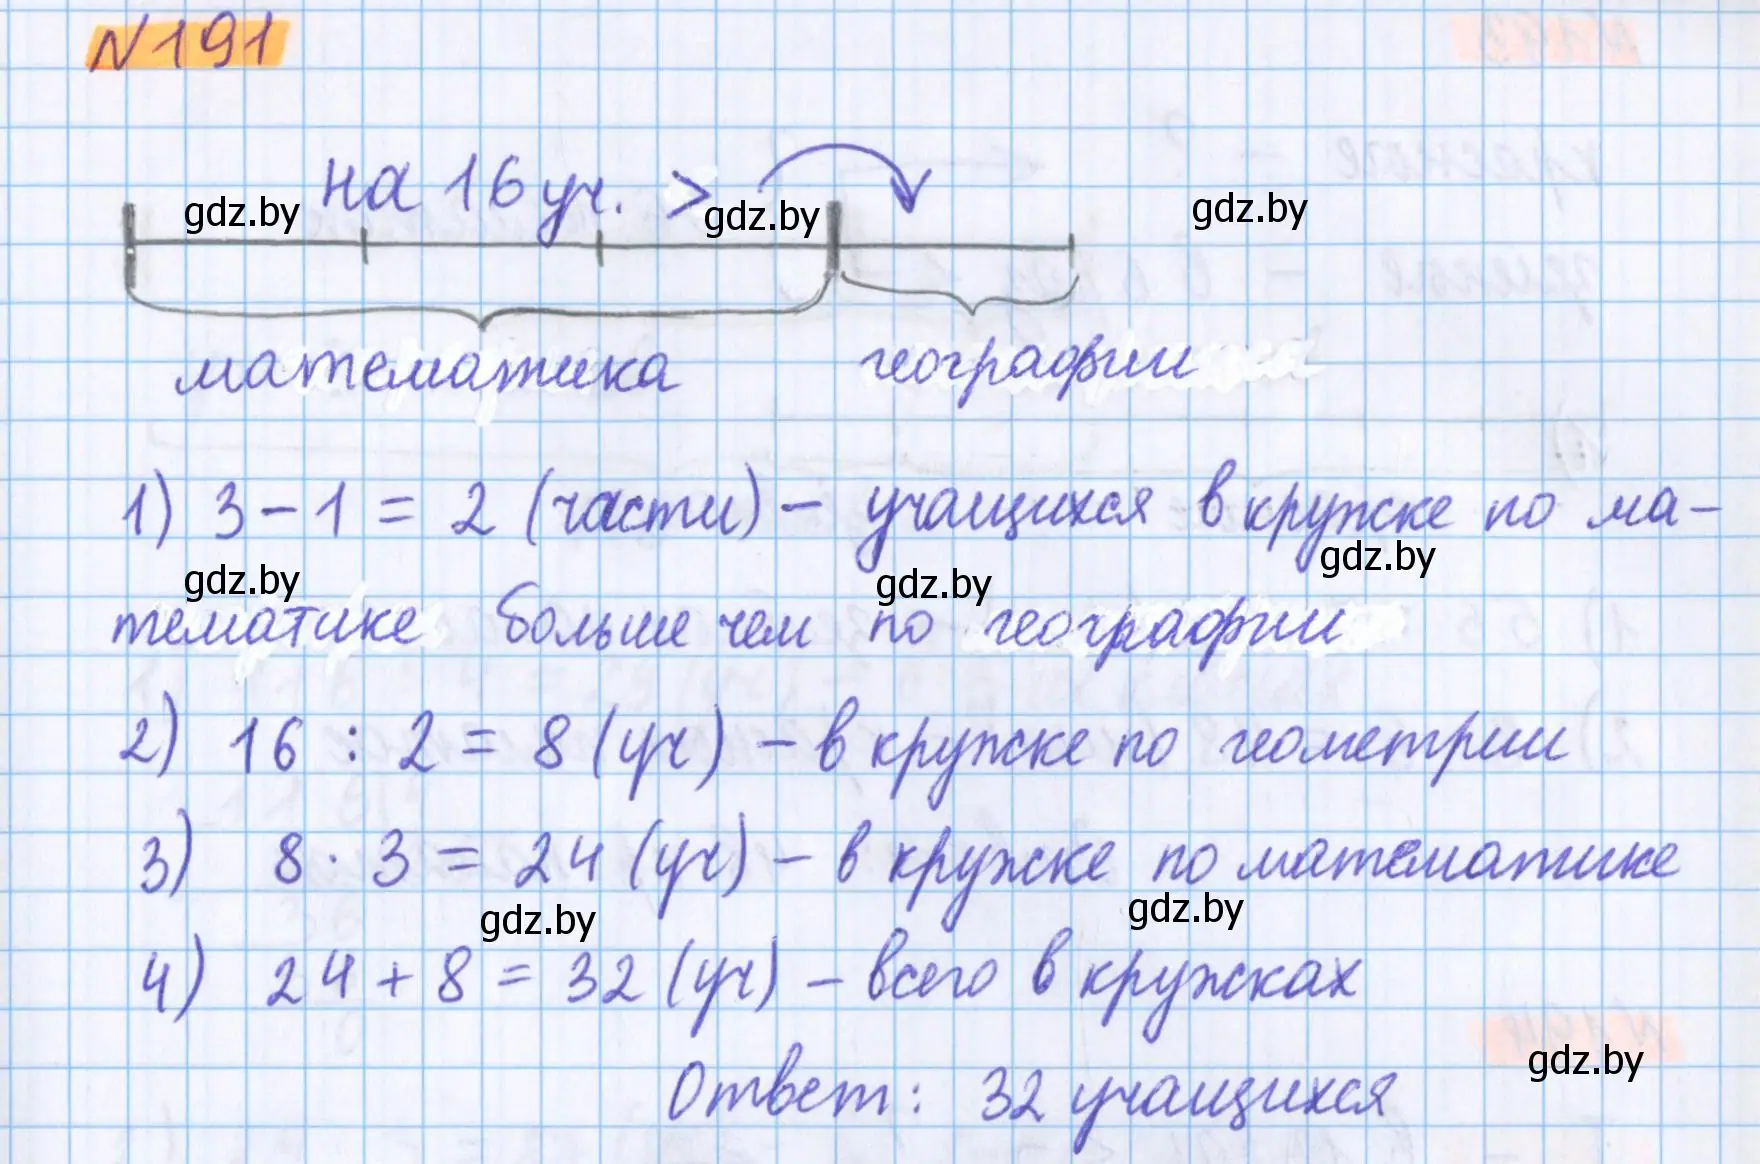 N191
на 16 уч. >
gdz.by gdz.by gdz.by
математика географии
1) 3 - 1 = 2 (части) - учащихся в кружке по ма-
gdz.by gdz.by gdz.by
тематике больше чем по географии
2) 16 : 2 = 8 (уч) - в кружке по геометрии
3) 8 · 3 = 24 (уч) - в кружке по математике
gdz.by gdz.by
4) 24 + 8 = 32 (уч) - всего в кружках
gdz.by
Ответ: 32 учащихся